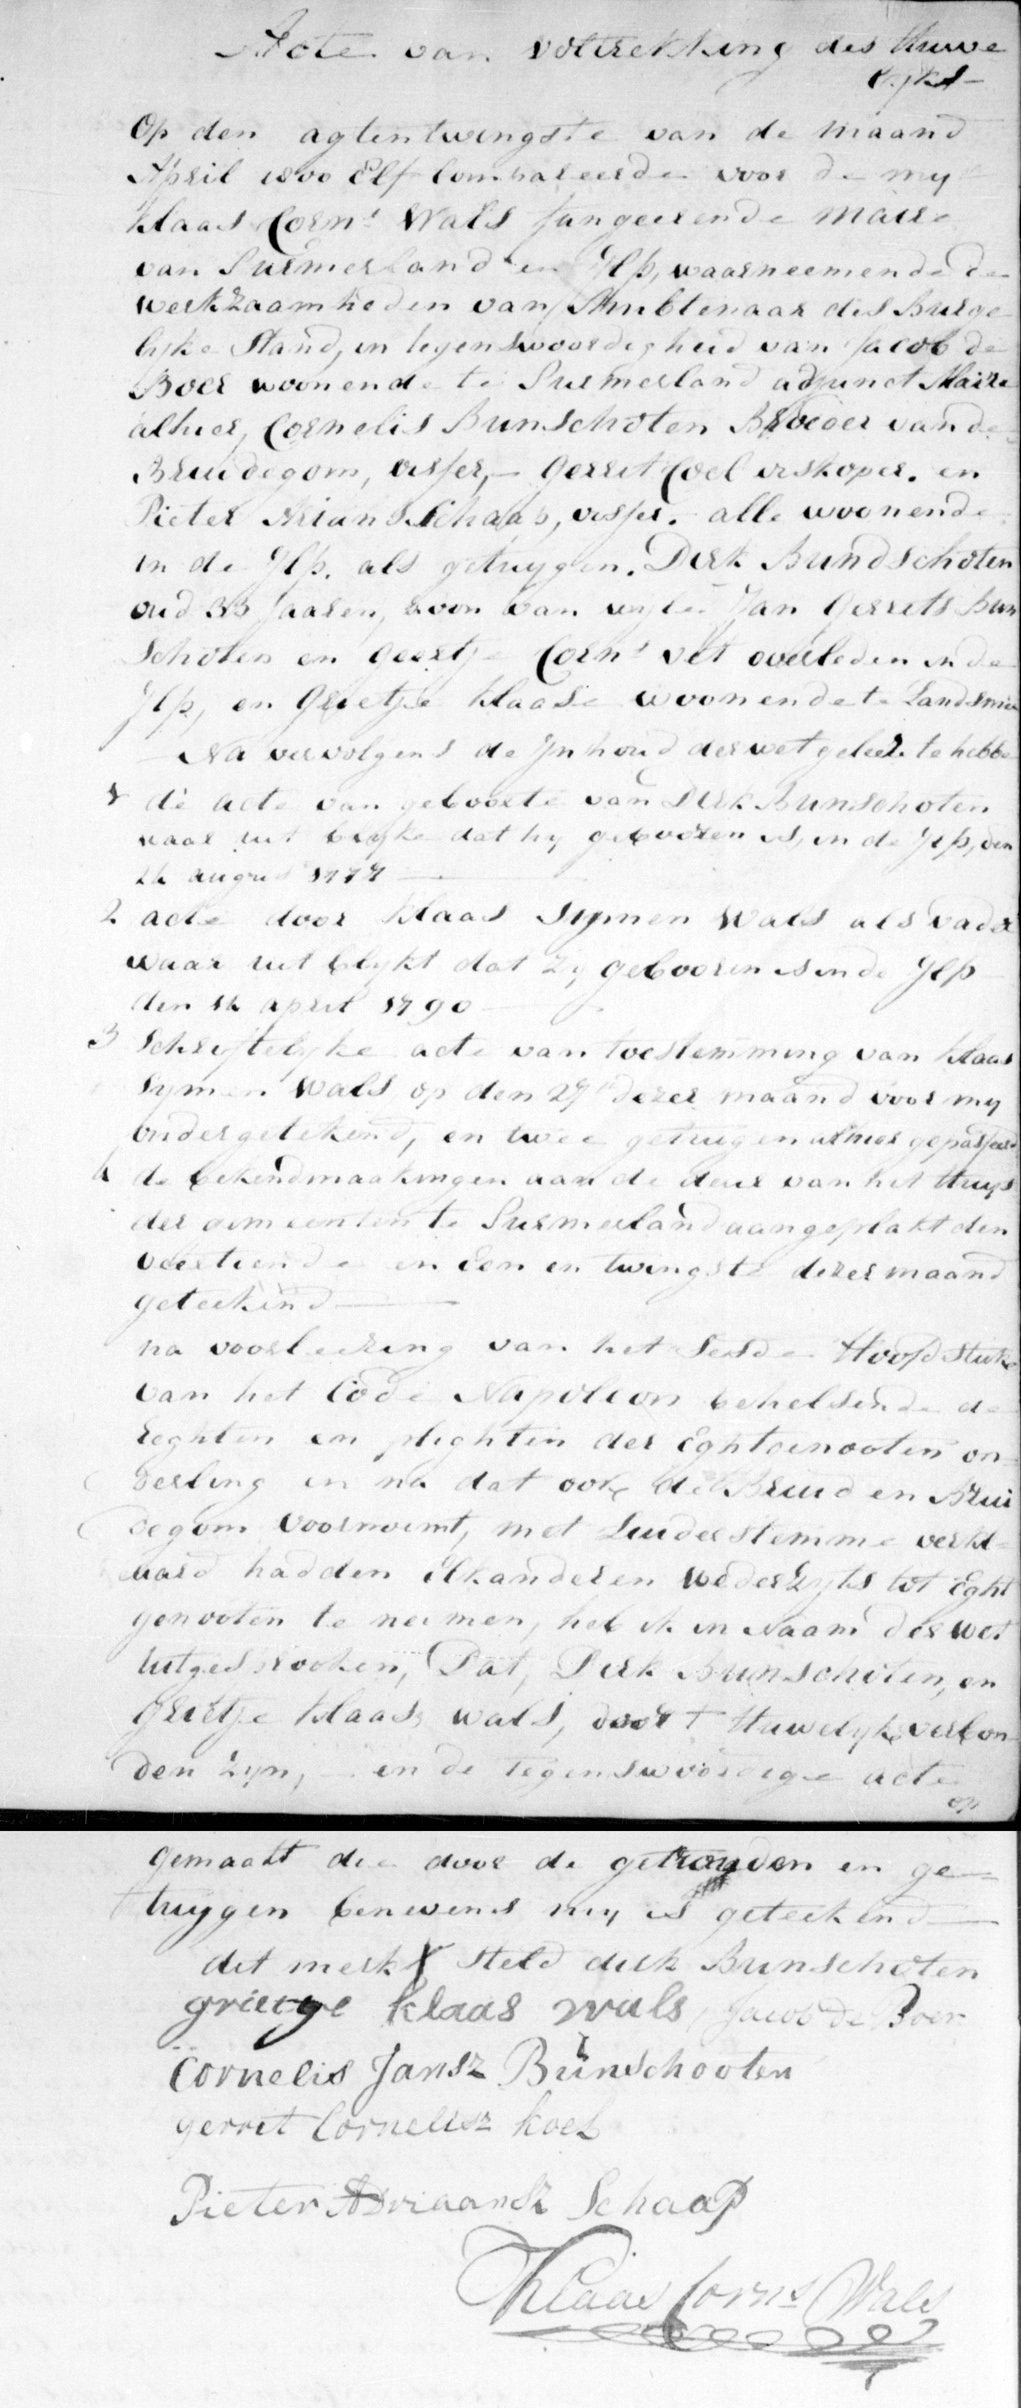 Acte van voltrekking des Huwe
lijks
Op den agtentwingste van de Maand
April 1800 Elf Compareerde voor de my
Klaas Corns Wals fungeerende Maire
van Purmerland en Ilp, waarneemende de
werkzaamheden van Ambtenaar des Burge
lyke Stand, in tegenswoordigheid van Jacob de
Boer woonende te Purmerland adjunct Maire
alhier, Cornelis Bunschoten Broeder van de
Bruidegom, visser, Gerrit Coel viskoper. en
Pieter Arians Schaap, visser. alle woonende
in de Ilp. als getuygen. Dirk Bundschoten
oud 33 Jaaren, zoon van wyle Jan Gerrets Bun
schoten en Geertje Corns Vet overleden in de
Ilp, en Grietje Klaase woonende te Landsmee
Na vervolgens de Inhoud der wet geleeze te hebbe
1 de acte van geboorte van Dirk Bunschoten
waar uit blyke dat hy gebooren is, in de Ilp, den
24 augus 1777
2 acte door Klaas Symen Wals als vader
waar uit blykt dat zy gebooren is in de Ilp
den 14 april 1790
3 Schriftelyke acte van toestemming van Klaas
Symen Wals op den 27 dezer maand voor my
ondergetekend, en twee getuigen alhier gepasseerd
4 de bekendmaakingen aan de deur van het Huys
der gemeenten te Purmerland aangeplakt den
veertiende en Een en twingste dezer maand
geteekend
na voorleezing van het Sesde Hoofdstuk
van het Code Napoleon behelsende de
reghten en plighten der Eghtgenooten on
derling en na dat ook de Bruid en Brui
degom voornoemt, met Luider stemme verkl
aard hadden Elkanderen wederzyts tot Eght
genooten te neemen, heb ik in Naam der wet
uitgesprooken, Dat, Dirk Bunschoten, en
Grietje Klaas Wals, door 't Huwelyk verbon
den zyn, en de tegenswoordige acte
op
gemaakt die door de getrouden en ge
tuygen benevens my is geteekend
dit merk X steld dirk Bunschoten
grietye klaas wals Jacob de Boer
Cornelis Jansz Bunschooten
gerrit Cornelisz koel
Pieter Adriaansz Schaap
Klaas Corns Wals